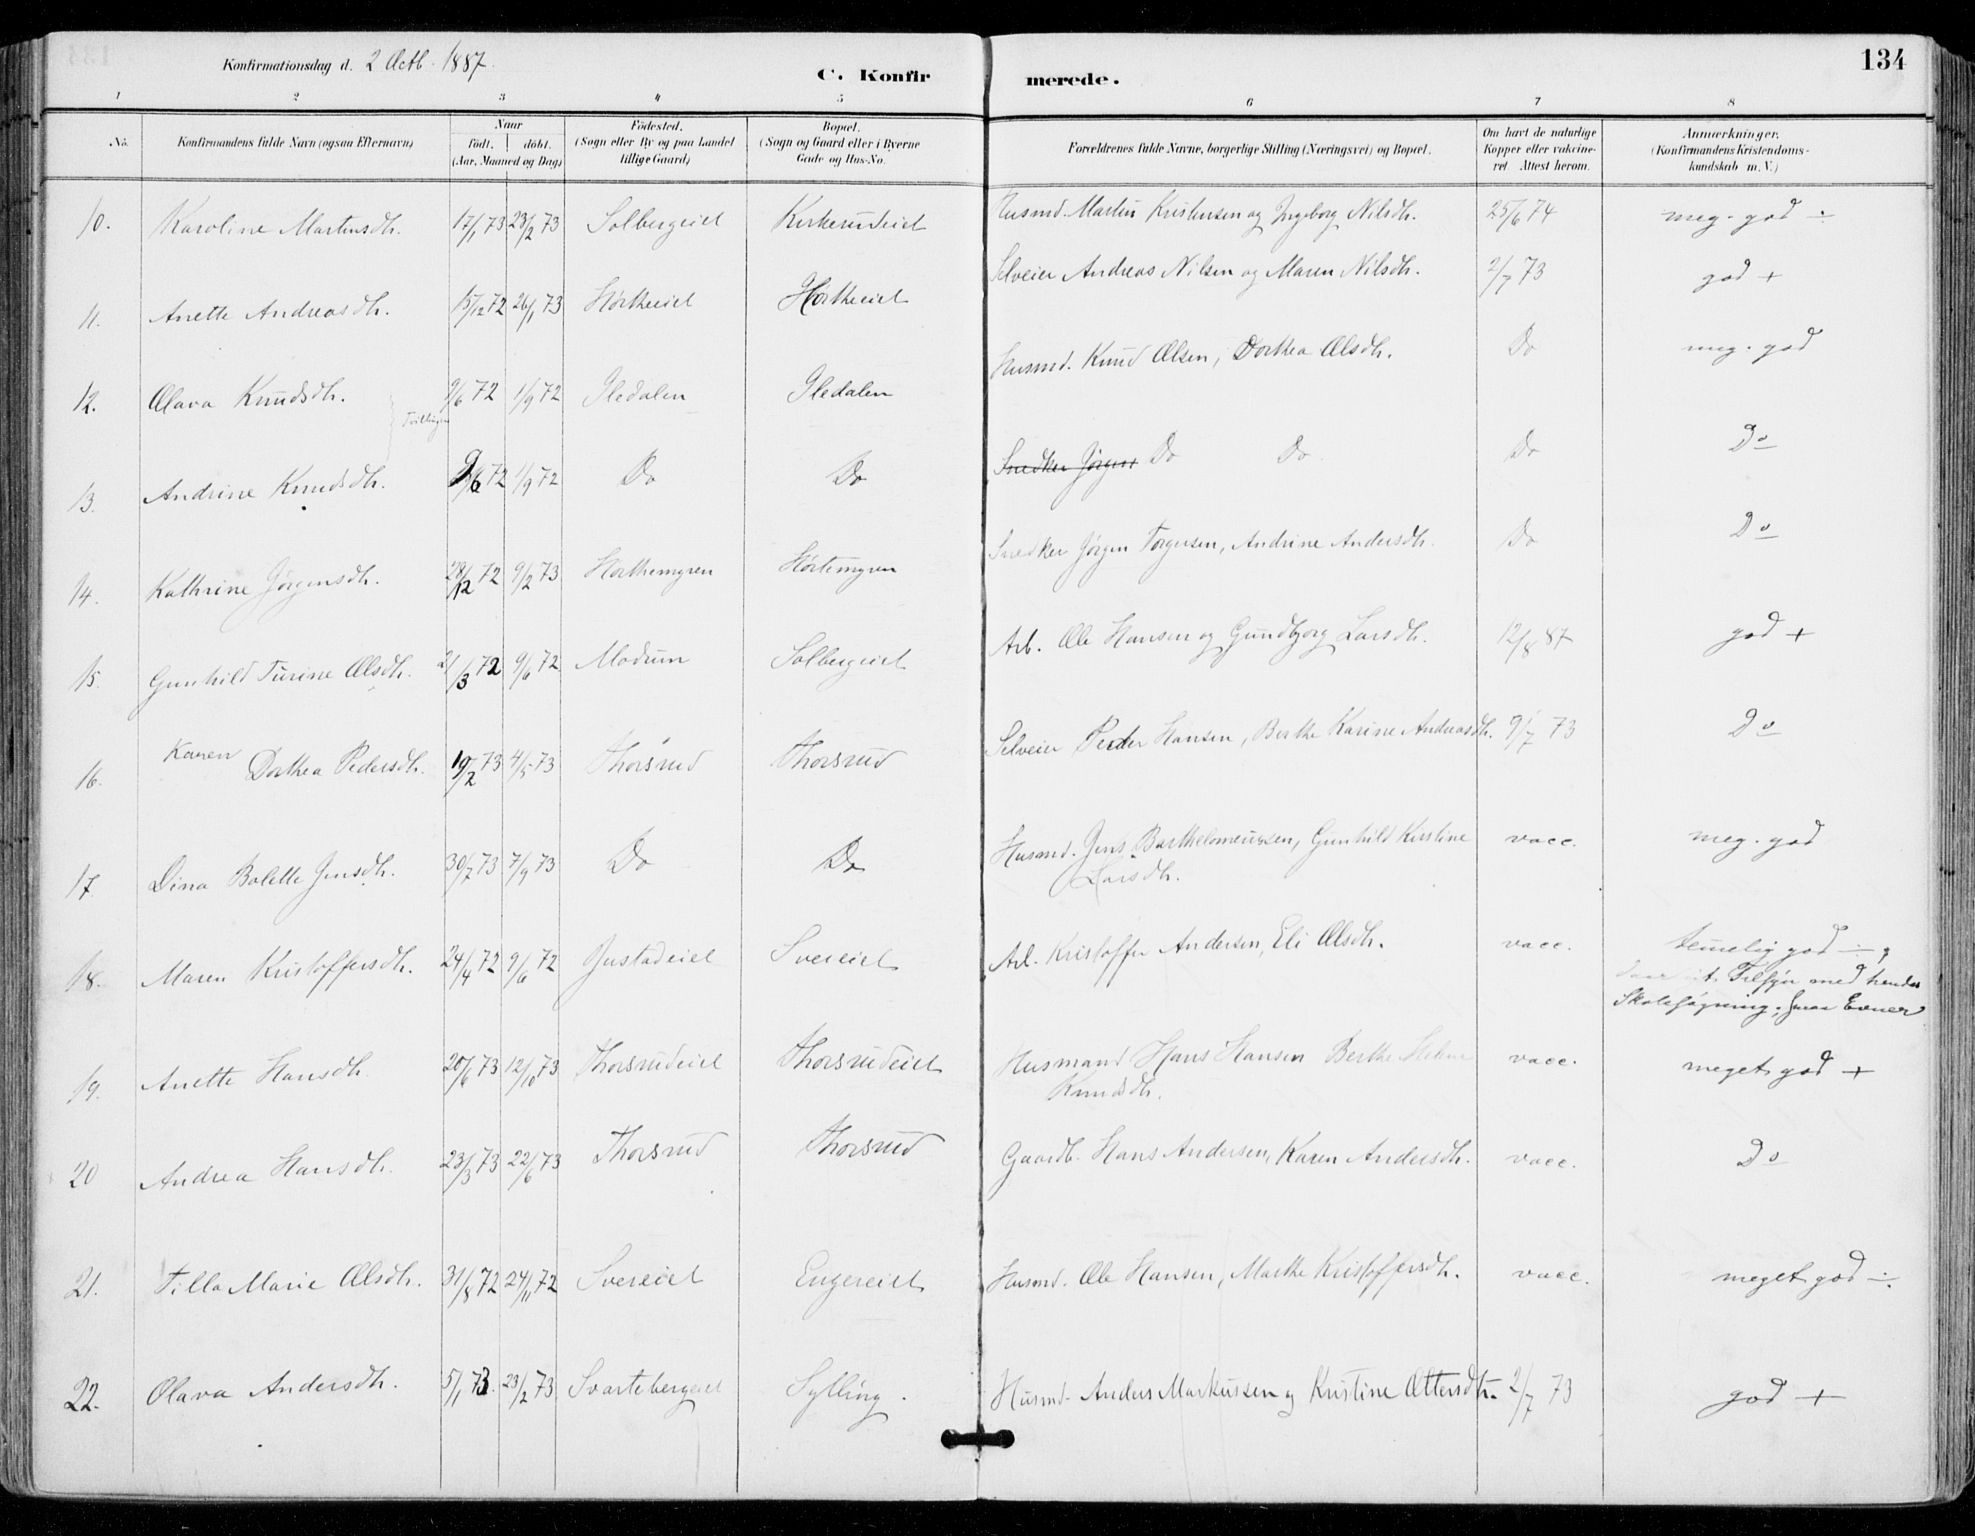 Konfirmationsdag d. 2 Octb. 1887.
C. Konfirmerede.
134
1 2 3 4 5 6 7 8
No. Konfirmandens fulde Navn (ogsaa Efternavn) Naar født. døbt. (Aar, Maaned og Dag) Fødested. (Sogn eller By og paa Landet tillige Gaard) Bopæl. (Sogn og Gaard eller i Byerne Gade og Hus-No. Forældrenes fulde Navne, borgerlige Stilling (Næringsvei) og Bopæl. Om havt de naturlige Kopper eller vakcineret. Attest herom. Anmærkninger. (Konfirmandens Kristendomskundskab m. V.)
10. Karoline Martinsdtr. 17/1 73 23/2 73 Solbergeiet Kirkerudeiet Husmd. Martin Kristensen og Ingeborg Nilsdtr. 25/6 74 meg. god ÷
11. Anette Andreasdtr. 15/12 72 26/1 73 Hørtheeiet Hørtheeiet Selveier Andreas Nilsen og Maren Nilsdtr. 2/7 73 god +
12. Olava Knudsdtr. 9/6 72 1/9 72 Iledalen Iledalen Husmd. Knud Olsen, Dorthea Olsdtr. Do meg. god
Tvillinger
13. Andrine Knudsdtr. 9/6 72 1/9 72 Do Do Snedker Jørgen Do Do Do Do
14. Kathrine Jørgensdtr. 28/12 72 9/2 73 Hørthemyren Hørtemyren Snedker Jørgen Torgersen, Andrine Andersdtr. Do Do
15. Gunhild Turine Olsdtr. 21/3 72 9/6 72 Modum Solbergeiet Arb. Ole Hansen og Gundbjorg Larsdtr. 12/8 87 god +
16. Karen Dorthea Pedersdtr. 19/2 73 4/5 73 Thorsrud Thorsrud Selveier Peder Hansen, Berthe Karine Andreasdtr. 9/7 73 Do
17. Dina Bolette Jensdtr. 30/7 73 7/9 73 Do Do Husmd. Jens Barthelomeussen, Gunhild Kirstine vacc. meg. god
Larsdtr.
18. Maren Kristoffersdtr. 24/4 72 9/6 72 Gustadeiet Svereiet Arb. Kristoffer Andersen, Eli Olsdtr. vacc. temelig god ÷
Tilsyn med hendes
Skolesøgning; smaa Evner
19. Anette Hansdtr. 20/6 73 12/10 73 Thorsrudeiet Thorsrudeiet Husmand Hans Hansen Berthe Helene vacc. meget god +
Knudsdtr.
20 Andrea Hansdtr. 23/3 73 22/6 73 Thorsrud Thorsrud Gaardb. Hans Andersen, Karen Andersdtr. vacc. Do
21. Tilla Marie Olsdtr. 31/8 72 24/11 72 Svereiet Engereiet Husmd. Ole Hansen, Marthe Kristoffersdtr. vacc. meget god ÷
22. Olava Andersdtr. 5/1 73. 23/2 73 Svartebergeiet Sylling. Husmd. Anders Markussen og Kristine Ottersdtr. 2/7 73 god +